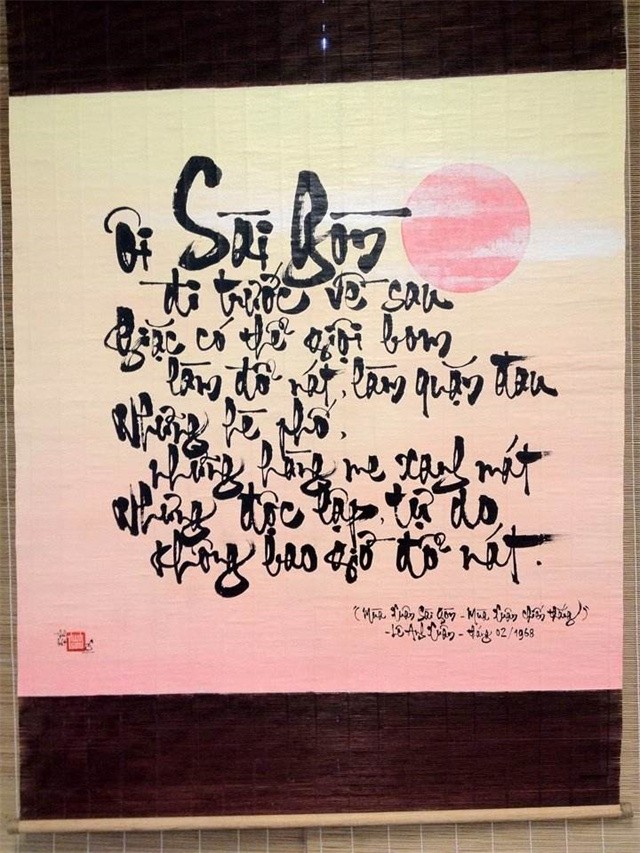 Ôi Sài Gòn
đi trước về sau
Giặc có thể giội bom
làm đổ nát, làm quặn đau
Những hè phố,
những hàng me xanh mát
Những độc lập, tự do
không bao giờ đổ nát.
(Mùa Xuân Sài Gòn - Mùa Xuân chiến thắng)
- Lê Anh Xuân - tháng 02/1968